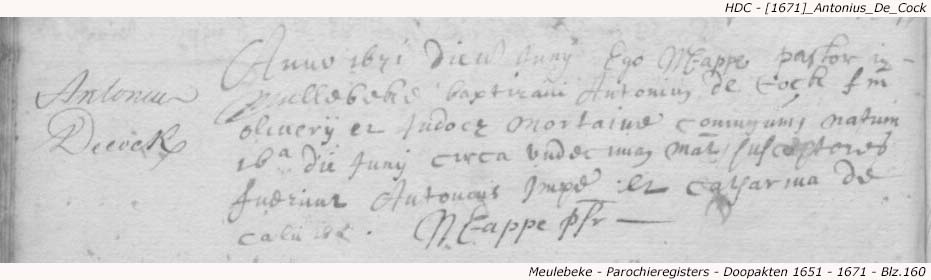 HDC - [1671]_Antonius_De_Cock
Anno 1671 die Junij Ego M Eappe pastor in
Antonius
Meullebeke baptizavi Antonium de Cock fm
Decock
oliverij et Judocę Mortaine coniugum natum
16a die Junij circa undecimam mat susceptores
fuerunt Antonius Impe et Catharina de
M Eappe pstr
Meulebeke - Parochieregisters - Doopakten 1651 - 1671 - Blz.160